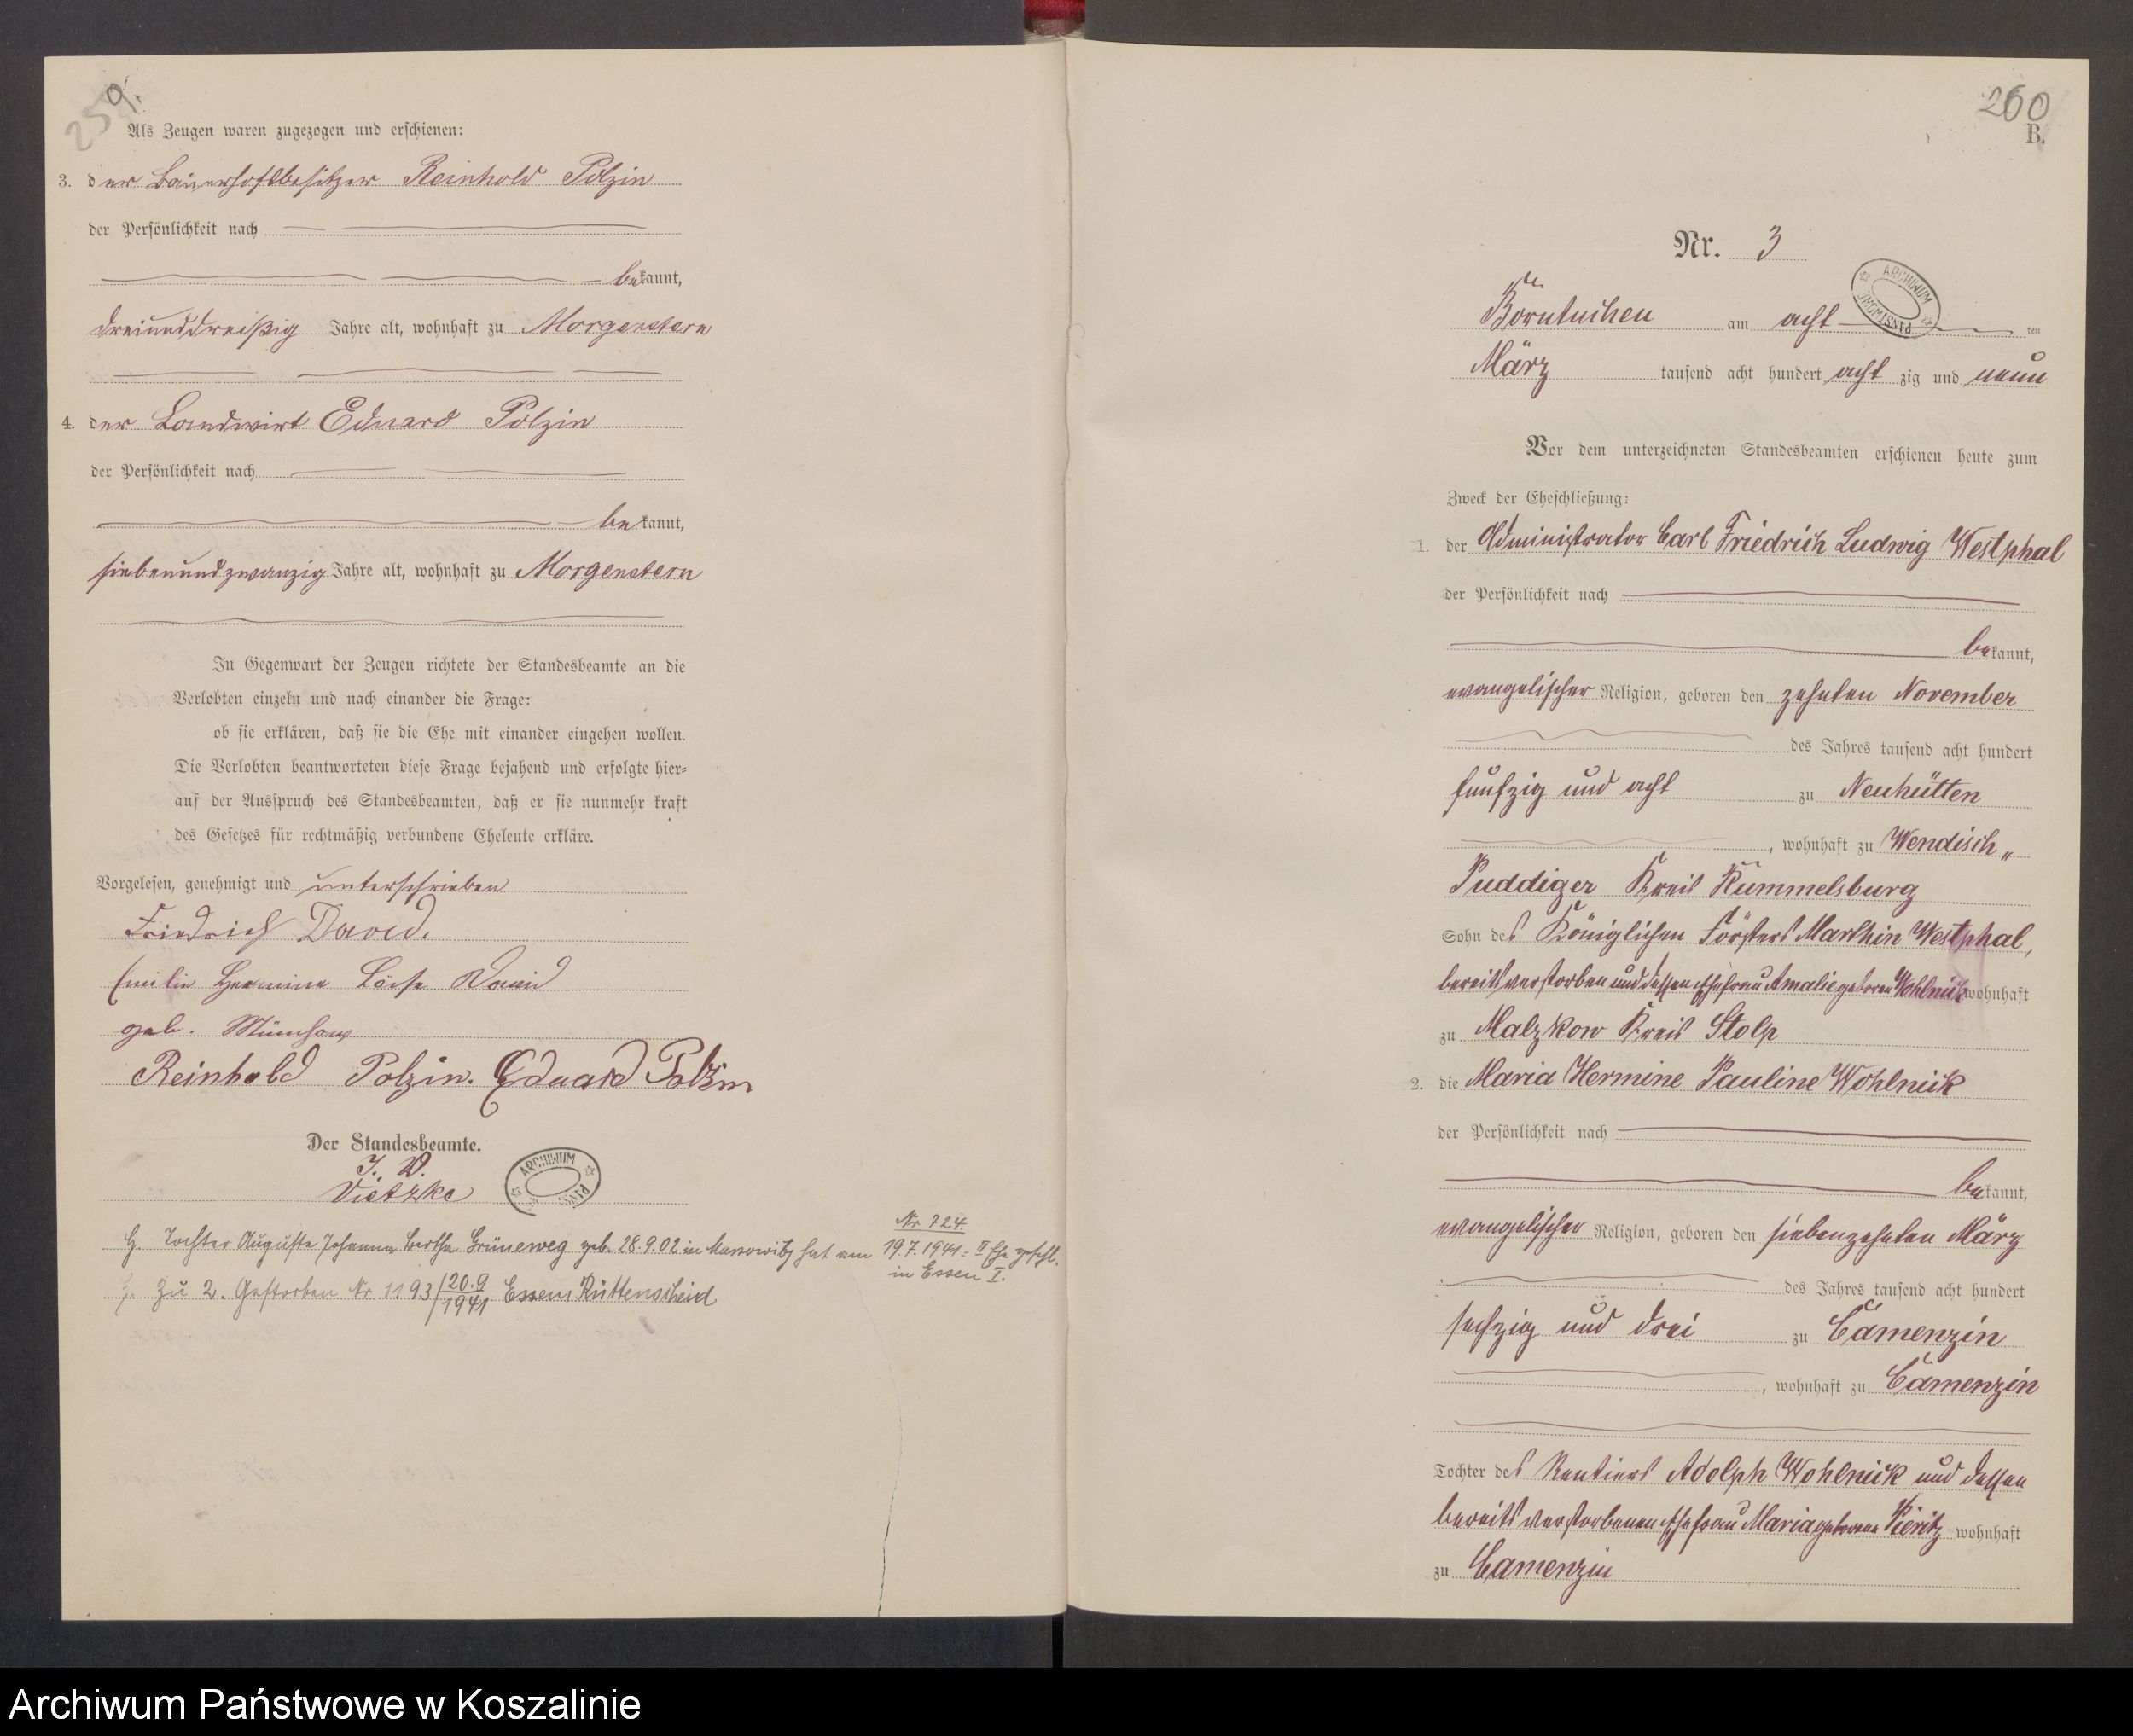 259.
Als Zeugen waren zugezogen und erschienen:
3. der Bauerhofbesitzer Reinhold Polzin
der Persönlichkeit nach
bekannt,
dreiunddreißig Jahre alt, wohnhaft zu Morgenstern
4. der Landwirt Eduard Polzin
der Persönlichkeit nach
bekannt,
siebenundzwanzig Jahre alt, wohnhaft zu Morgenstern
In Gegenwart der Zeugen richtete der Standesbeamte an die
Verlobten einzeln und nach einander die Frage:
ob sie erklären, daß sie die Ehe mit einander eingehen wollen.
Die Verlobten beantworteten diese Frage bejahend und erfolgte hier-
auf der Ausspruch des Standesbeamten, daß er sie nunmehr kraft
des Gesetzes für rechtmäßig verbundene Eheleute erkläre.
Vorgelesen, genehmigt und unterschrieben
Friedrich David.
Emilie Hermine David
geb. Münchow
Reinhold Polzin. Eduard Polzin
Der Standesbeamte.
J. V.
Vietzke
ARCHIWUM
Nr 724.
Tochter Auguste Johanna Bertha Grüneweg geb. 28.9.02 in Massowitz hat am 19.7.1941 II Ehe geschl.
in Essen I.
Zu 2. Gestorben Nr 1193/20.9 1941 Essen Rüttenscheid
260
B.
Nr. 3
ARCHIWUM
Borntuchen am acht ten
März tausend acht hundert achtzig und neun
Vor dem unterzeichneten Standesbeamten erschienen heute zum
Zweck der Eheschließung:
1. der Administrator Carl Friedrich Ludwig Westphal
der Persönlichkeit nach
bekannt,
evangelischer Religion, geboren den zehnten November
des Jahres tausend acht hundert
fünfzig und acht zu Neuhütten
, wohnhaft zu Wendisch„
Puddiger Kreis Rummelsburg
Sohn des Königlichen Försters Marthin Westphal,
bereits verstorben und dessen Ehefrau Amalie geboren Wohlnick wohnhaft
zu Malzkow Kreis Stolp
2. die Maria Hermine Pauline Wohlnick
der Persönlichkeit nach
bekannt,
evangelischer Religion, geboren den siebenzehnten März
des Jahres tausend acht hundert
sechzig und drei zu Camenzin
, wohnhaft zu Camenzin
Tochter des Rentiers Adolph Wohlnick und dessen
bereits verstorbenen Ehefrau Maria geborene Kieritz wohnhaft
zu Camenzin
Archiwum Państwowe w Koszalinie